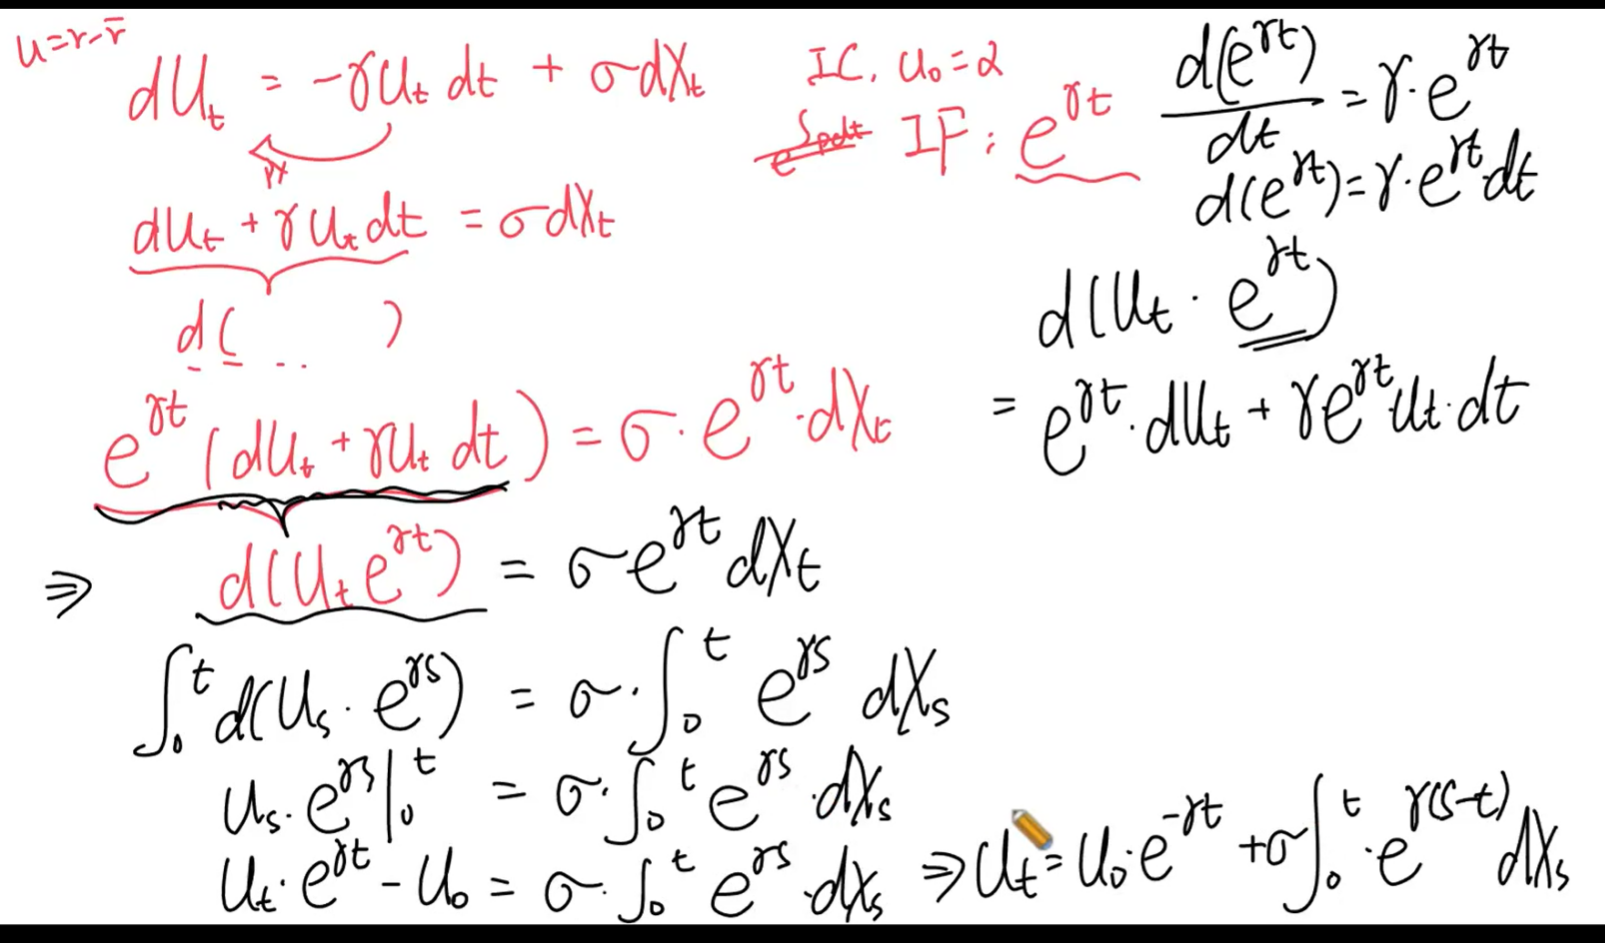 u=r-r̄
dU_t = -γU_t dt + σdX_t
IC. u_0=2
e^{∫pdt} IF: e^{γt}
d(e^{γt})/dt = γ·e^{γt}
d(e^{γt})=γ·e^{γt}·dt
dU_t + γU_t dt = σdX_t
d( .. )
d(U_t · e^{γt})
= e^{γt}·dU_t + γe^{γt}U_t·dt
e^{γt}(dU_t + γU_t dt) = σ·e^{γt}·dX_t
⇒ d(U_t e^{γt}) = σe^{γt}dX_t
∫_0^t d(U_s·e^{γs}) = σ·∫_0^t e^{γs} dX_s
U_s·e^{γs}|_0^t = σ·∫_0^t e^{γs}·dX_s
U_t·e^{γt} - U_0 = σ·∫_0^t e^{γs}·dX_s ⇒ U_t = U_0·e^{-γt} + σ∫_0^t·e^{γ(s-t)}dX_s